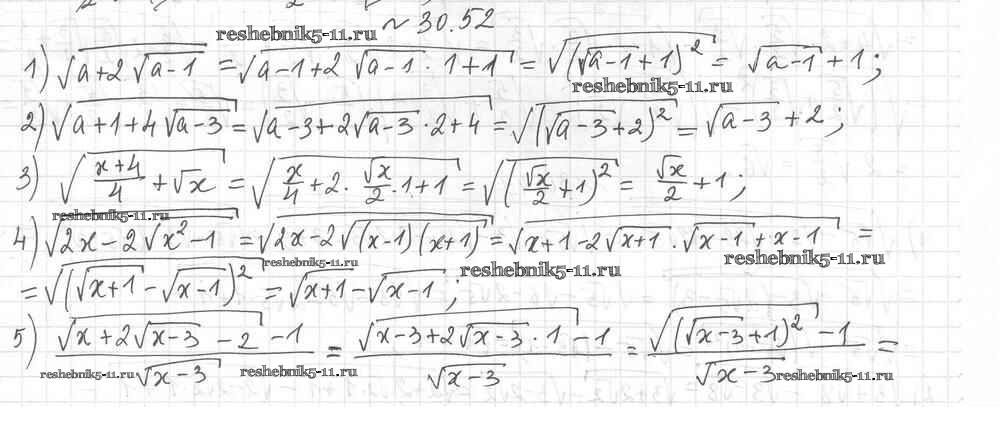 № 30.52
reshebnik5-11.ru
1) √(a+2√(a-1)) = √(a-1+2√(a-1)·1+1) = √((√(a-1)+1)²) = √(a-1)+1;
reshebnik5-11.ru
2) √(a+1+4√(a-3)) = √(a-3+2√(a-3)·2+4) = √((√(a-3)+2)²) = √(a-3)+2;
3) √((x+4)/4+√x) = √(x/4+2·√x/2·1+1) = √((√x/2+1)²) = √x/2+1;
reshebnik5-11.ru
4) √(2x-2√(x²-1)) = √(2x-2√((x-1)(x+1))) = √(x+1-2√(x+1)·√(x-1)+x-1) =
reshebnik5-11.ru reshebnik5-11.ru reshebnik5-11.ru
= √((√(x+1)-√(x-1))²) = √(x+1)-√(x-1);
5) (√(x+2√(x-3)-2)-1)/√(x-3) = (√(x-3+2√(x-3)·1)-1)/√(x-3) = (√((√(x-3)+1)²)-1)/√(x-3) =
reshebnik5-11.ru reshebnik5-11.ru reshebnik5-11.ru